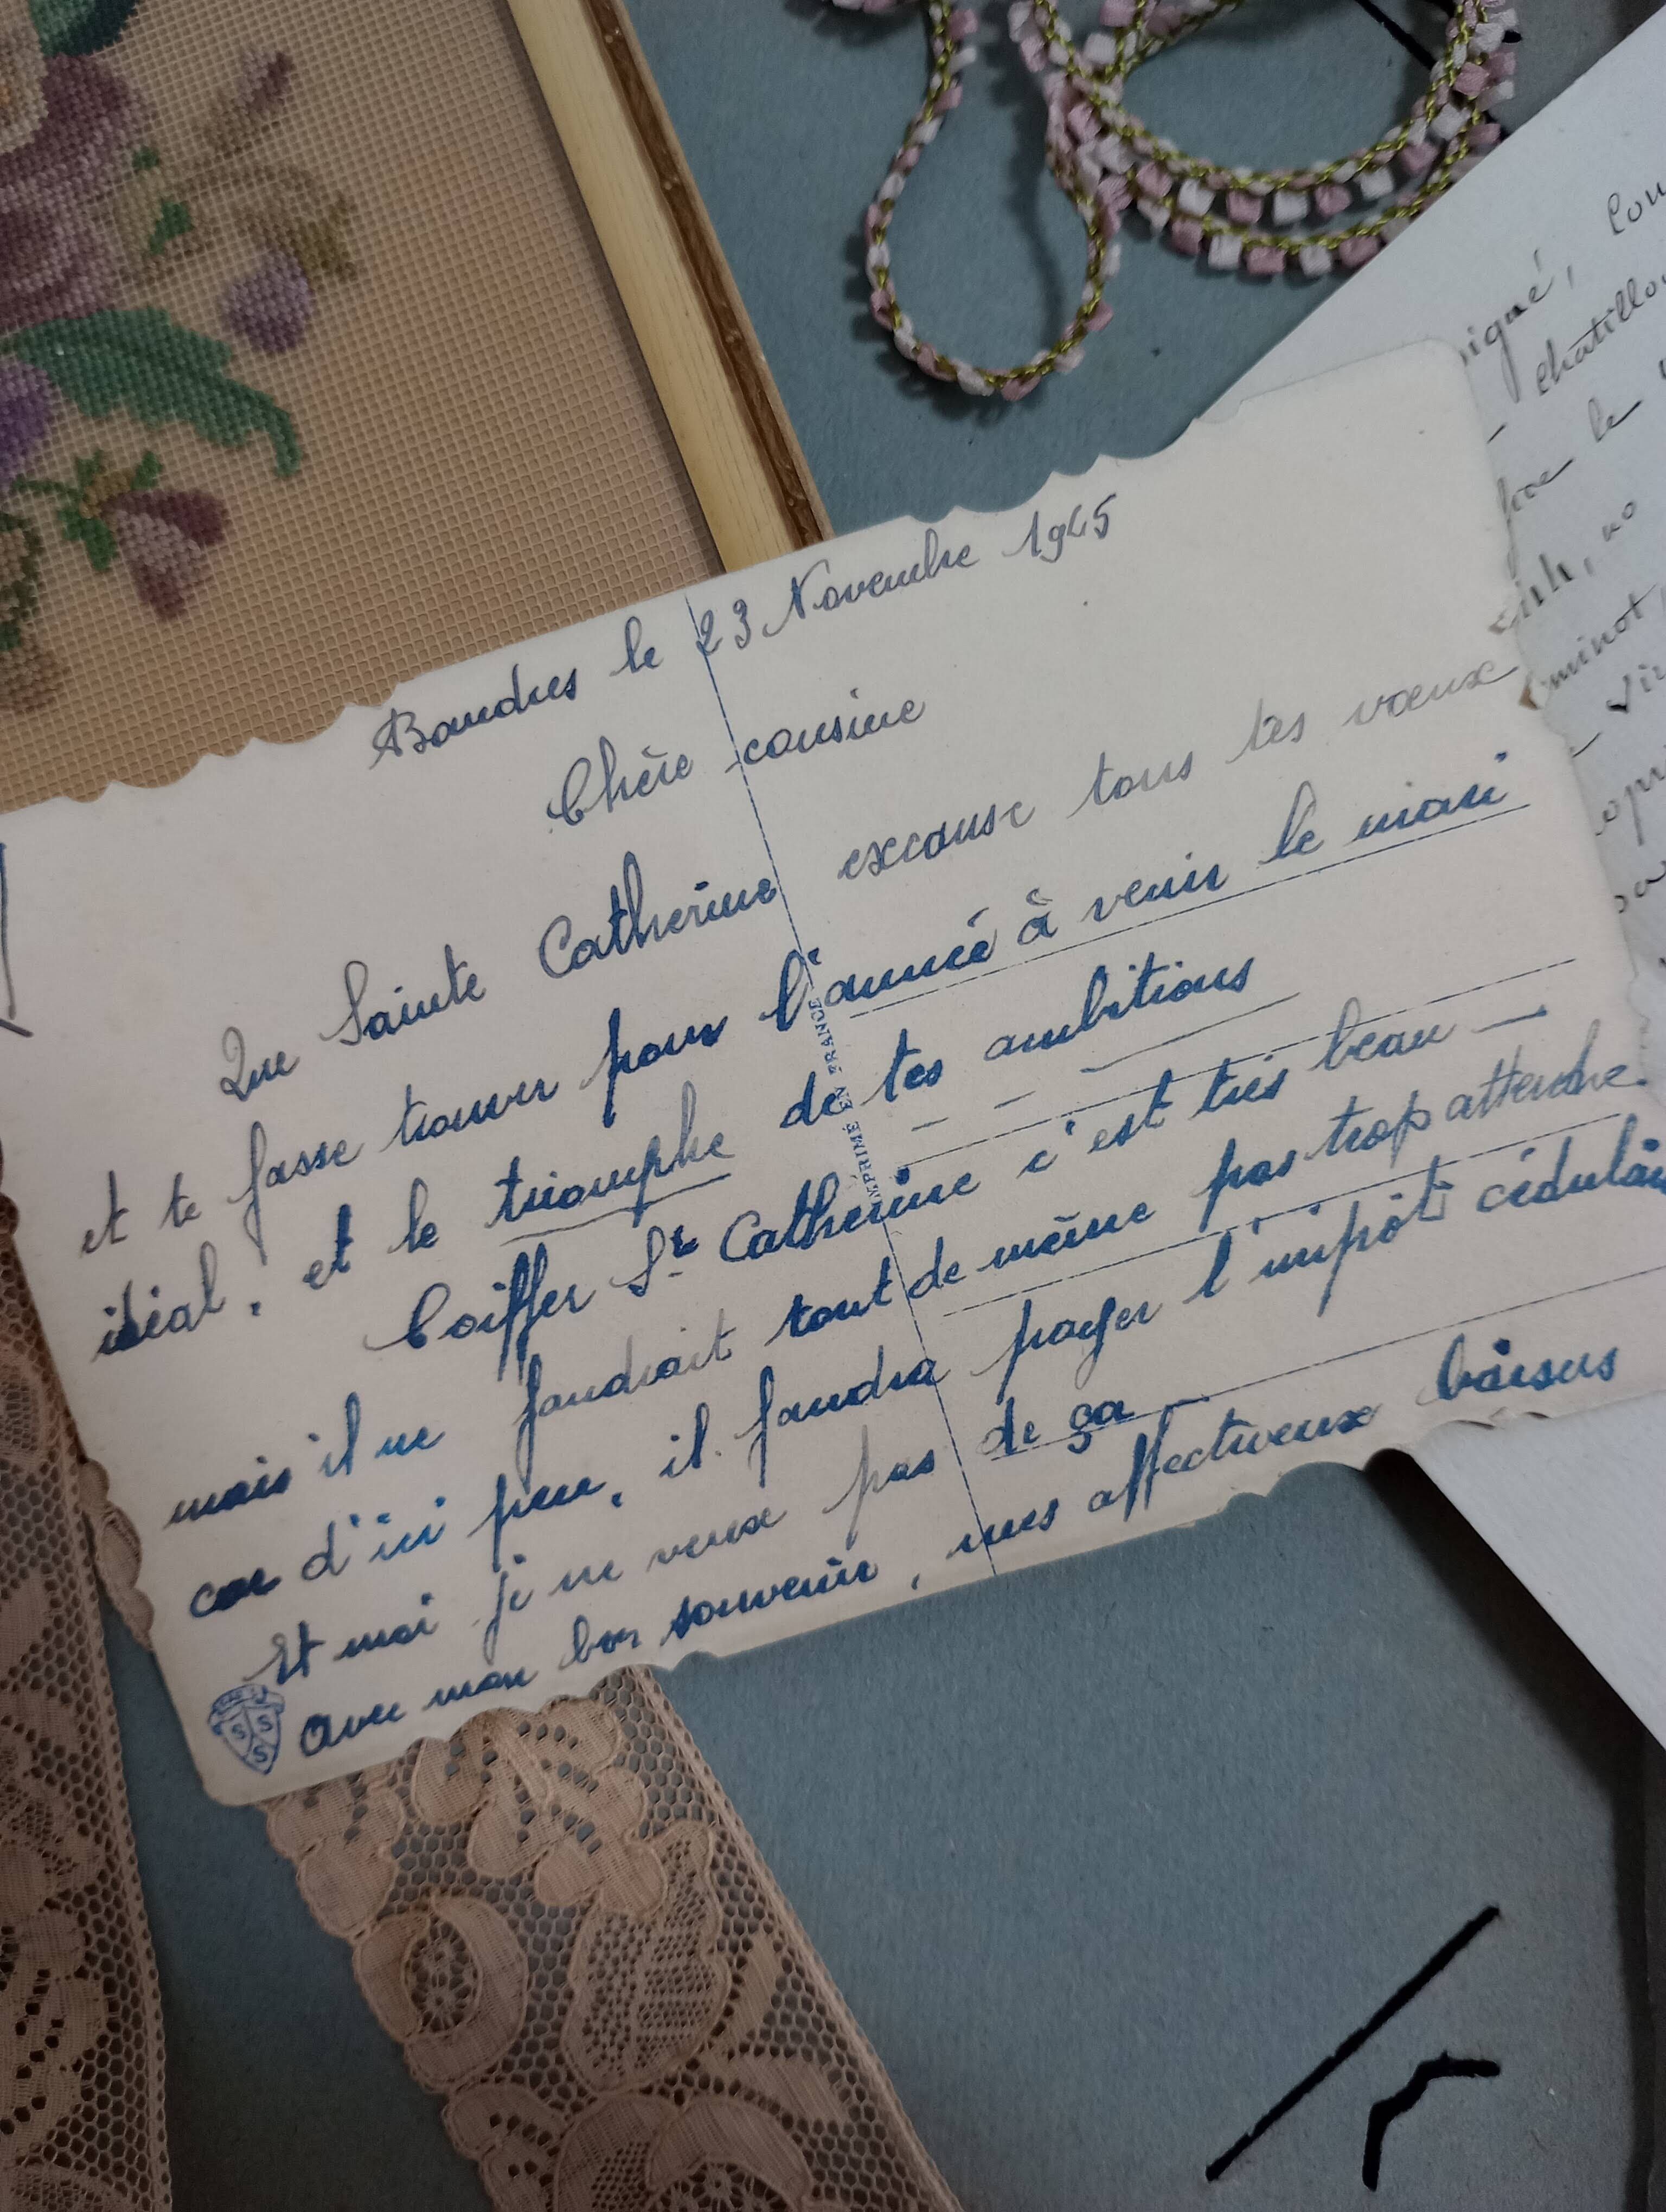 Baudres le 23 Novembre 1945
Chère cousine
Que Sainte Catherine excause tous tes vœux
et te fasse trouver pour l'année à venir le mari
idéal, et le triomphe de tes ambitions
Coiffer Ste Catherine c'est très beau —
mais il ne faudrait tout de même pas trop attendre
car d'ici peu, il faudra payer l'impôt cédulai
Et moi je ne veux pas de ça
Avec mon bon souvenir, mes affectueux baisers
IMPRIMÉ EN FRANCE
S S S
igné,
chatillo
le
minot